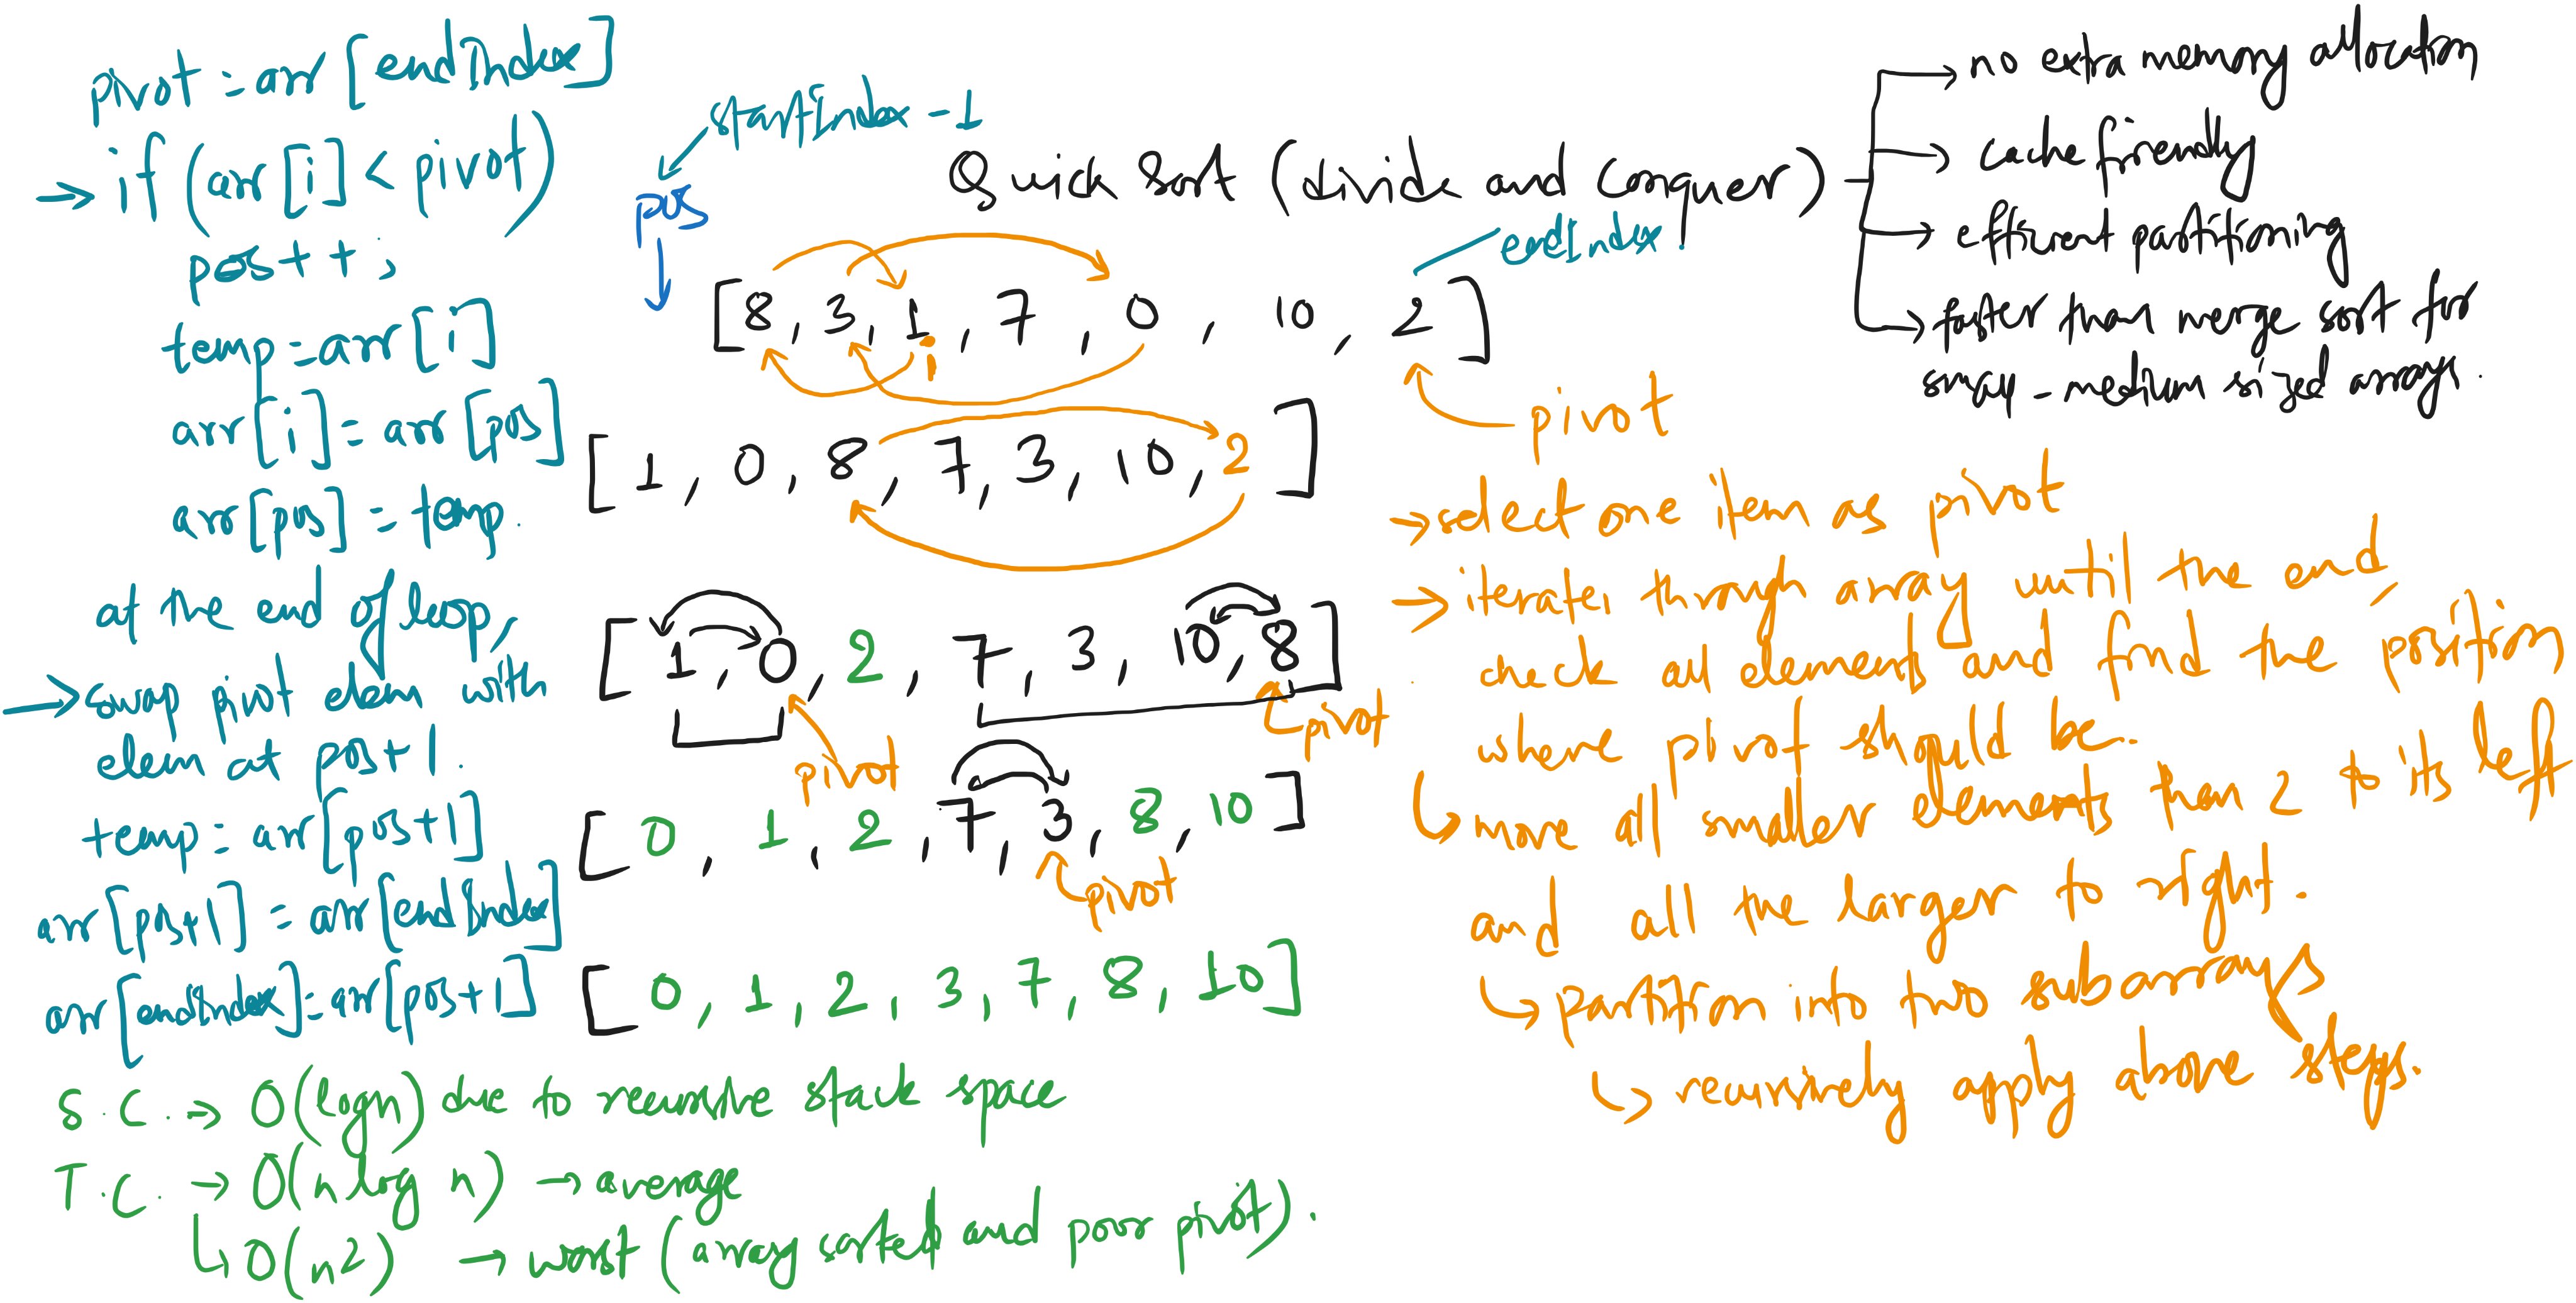 pivot = arr [endIndex]
→ if (arr [i] < pivot)
pos++;
temp = arr [i]
arr [i] = arr [pos]
arr [pos] = temp.
at the end of loop,
→ swap pivot elem with
elem at pos+1.
temp = arr [pos+1]
arr [pos+1] = arr [endIndex]
arr [endIndex] = arr [pos+1]
startIndex - 1
pos
Quick Sort (divide and conquer)
→ no extra memory allocation
→ cache friendly
→ efficient partitioning
→ faster than merge sort for
small - medium sized arrays.
endIndex.
[8, 3, 1, 7, 0, 10, 2]
i
pivot
[1, 0, 8, 7, 3, 10, 2]
[1, 0, 2, 7, 3, 10, 8]
pivot
pivot
[0, 1, 2, 7, 3, 8, 10]
pivot
[0, 1, 2, 3, 7, 8, 10]
→ select one item as pivot
→ iterate through array until the end,
check all elements and find the position
where pivot should be.
↳ move all smaller elements than 2 to its left
and all the larger to right.
↳ partition into two subarrays
↳ recursively apply above steps.
S.C. → O(logn) due to recursive stack space
T.C. → O(n log n) → average
↳ O(n²) → worst (array sorted and poor pivot).